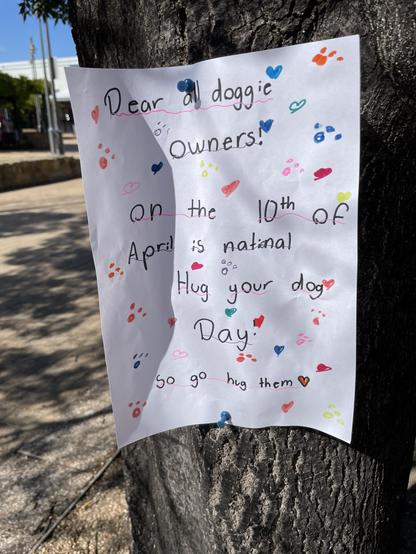 Dear all doggie
owners!
on the 10th of
April is natinal
Hug your dog
Day!
So go hug them